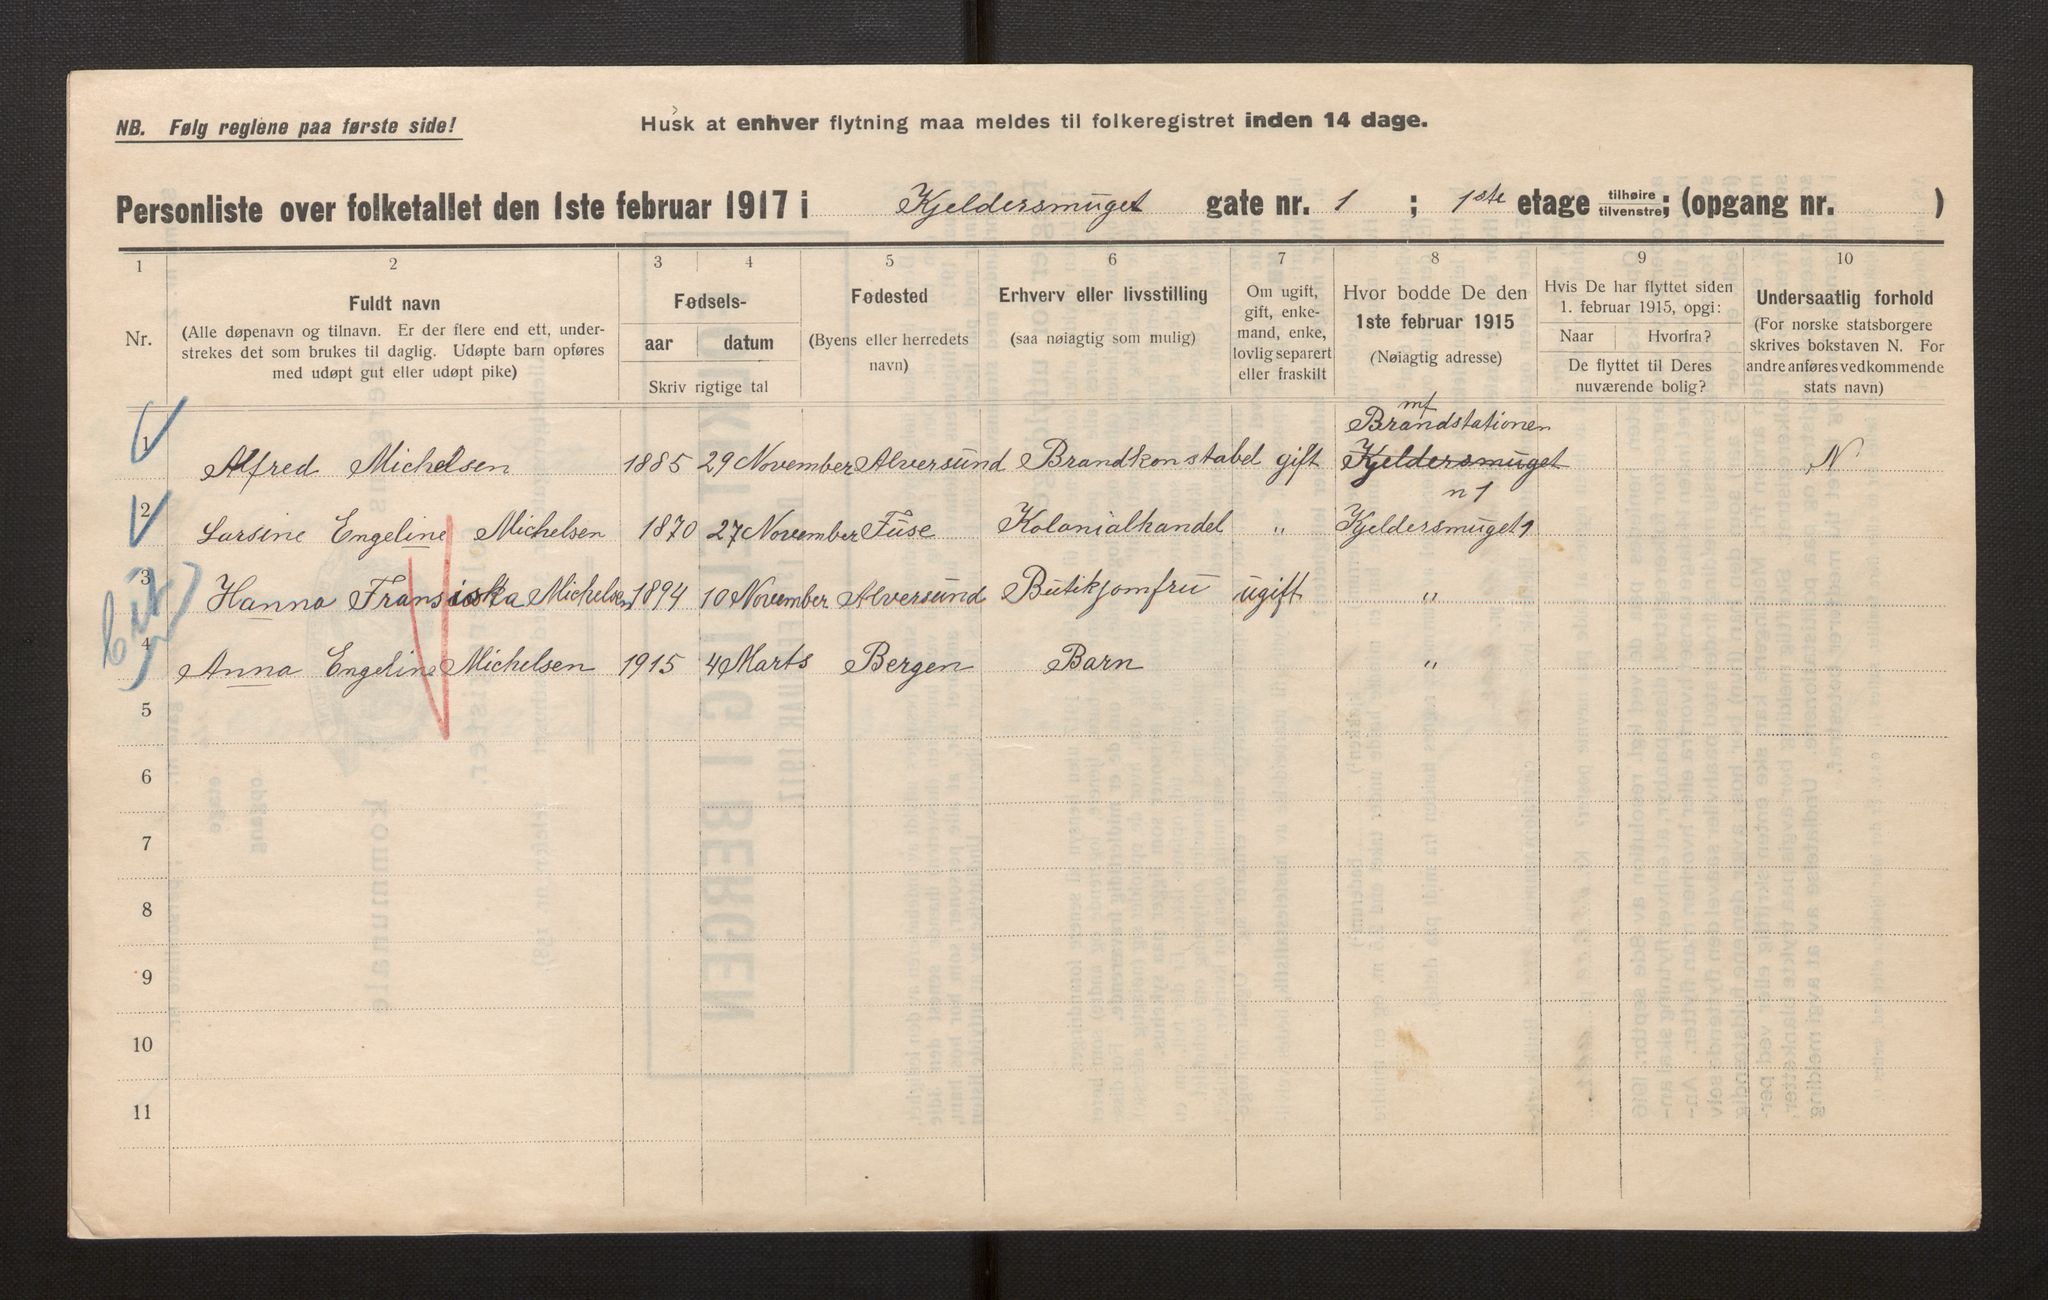 NB. Følg reglene paa første side!
Husk at enhver flytning maa meldes til folkeregistret inden 14 dage.
Personliste over folketallet den 1ste februar 1917 i Kjeldersmuget gate nr. 1 ; 1ste etage tilhøire tilvenstre; (opgang nr. )
1 2 3 4 5 6 7 8 9 10
Nr.
Fuldt navn
(Alle døpenavn og tilnavn. Er der flere end ett, under-
strekes det som brukes til daglig. Udøpte barn opføres
med udøpt gut eller udøpt pike)
Fødsels-
aar datum
Skriv rigtige tal
Fødested
(Byens eller herredets
navn)
Erhverv eller livsstilling
(saa nøiagtig som mulig)
Om ugift,
gift, enke-
mand, enke,
lovlig separert
eller fraskilt
Hvor bodde De den
1ste februar 1915
(Nøiagtig adresse)
Hvis De har flyttet siden
1. februar 1915, opgi:
Naar Hvorfra?
De flyttet til Deres
nuværende bolig?
Undersaatlig forhold
(For norske statsborgere
skrives bokstaven N. For
andre anføres vedkommende
stats navn)
Brandstationen
1 Alfred Michelsen 1885 29 November Alversund Brandkonstabel gift Kjeldersmuget N
n 1
2 Larsine Engeline Michelsen 1870 27 November Fuse Kolonialhandel " Kjeldersmuget 1
3 Hanna Fransiska Michelsen 1894 10 November Alversund Butikjomfru ugift "
4 Anna Engeline Michelsen 1915 4 Marts Bergen Barn "
5
6
7
8
9
10
11